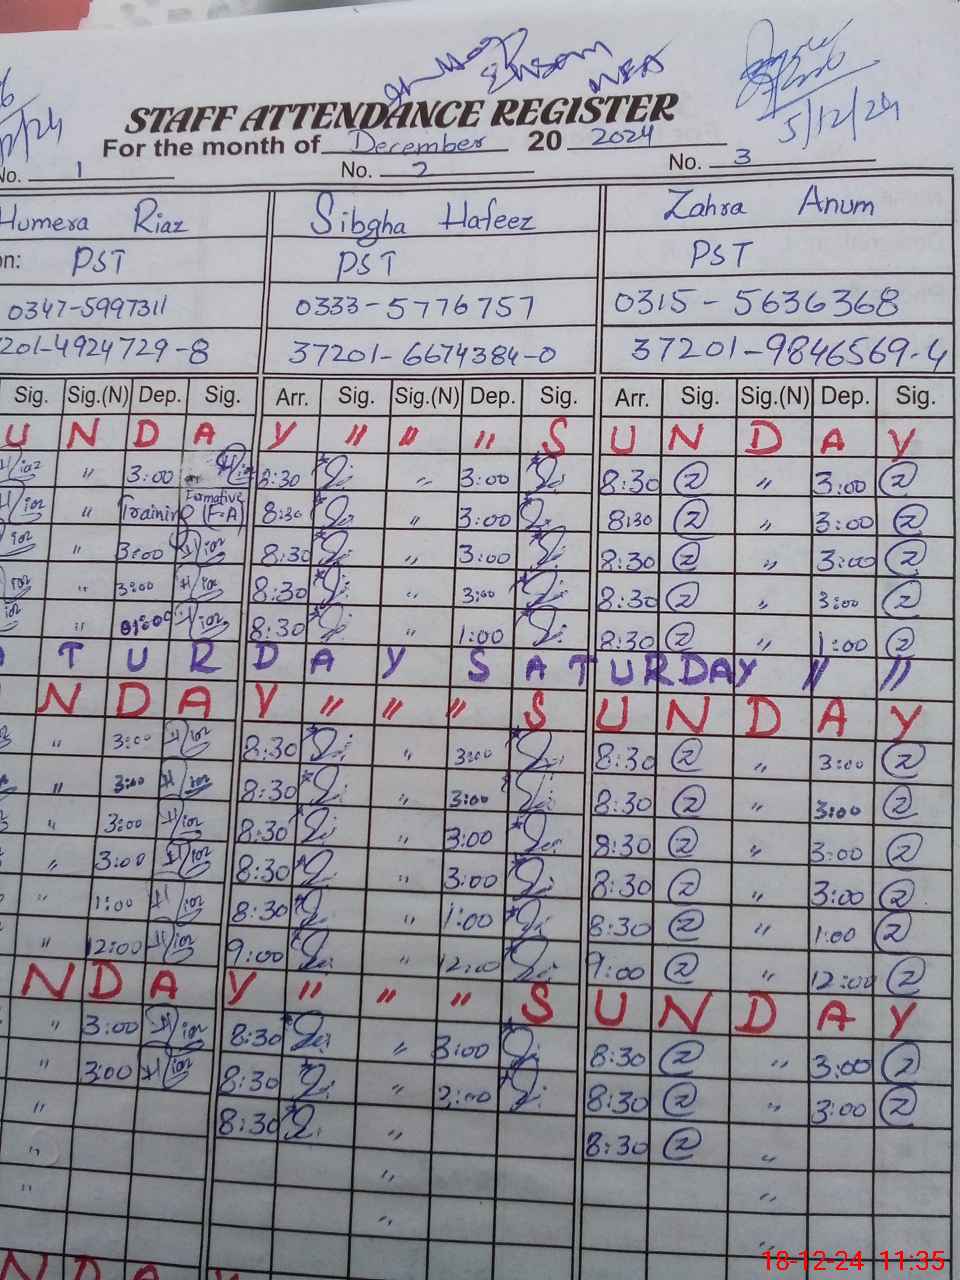 STAFF ATTENDANCE REGISTER
For the month of December 20 2024
5/12/24
No. 1 No. 2 No. 3
Humera Riaz Sibgha Hafeez Zahra Anum
on: PST PST PST
0347-5997311 0333-5776757 0315-5636368
201-4924729-8 37201-6674384-0 37201-9846569-4
Sig. Sig.(N) Dep. Sig. Arr. Sig. Sig.(N) Dep. Sig. Arr. Sig. Sig.(N) Dep. Sig.
U N D A Y " " " S U N D A Y
" 3:00 8:30 " 3:00 8:30 " 3:00
" Training Formative (F-A) 8:30 " 3:00 8:30 " 3:00
" 3:00 8:30 " 3:00 8:30 " 3:00
" 3:00 8:30 " 3:00 8:30 " 3:00
" 01:00 8:30 " 1:00 8:30 " 1:00
A T U R D A Y S A T U R D A Y " "
N D A Y " " " S U N D A Y
" 3:00 8:30 " 3:00 8:30 " 3:00
" 3:00 8:30 " 3:00 8:30 " 3:00
" 3:00 8:30 " 3:00 8:30 " 3:00
" 3:00 8:30 " 3:00 8:30 " 3:00
" 1:00 8:30 " 1:00 8:30 " 1:00
" 12:00 9:00 " 12:00 9:00 " 12:00
N D A Y " " " S U N D A Y
" 3:00 8:30 " 3:00 8:30 " 3:00
" 3:00 8:30 " 2:00 8:30 " 3:00
" 8:30 " 8:30 "
" " "
" " "
N D A Y
18-12-24 11:35